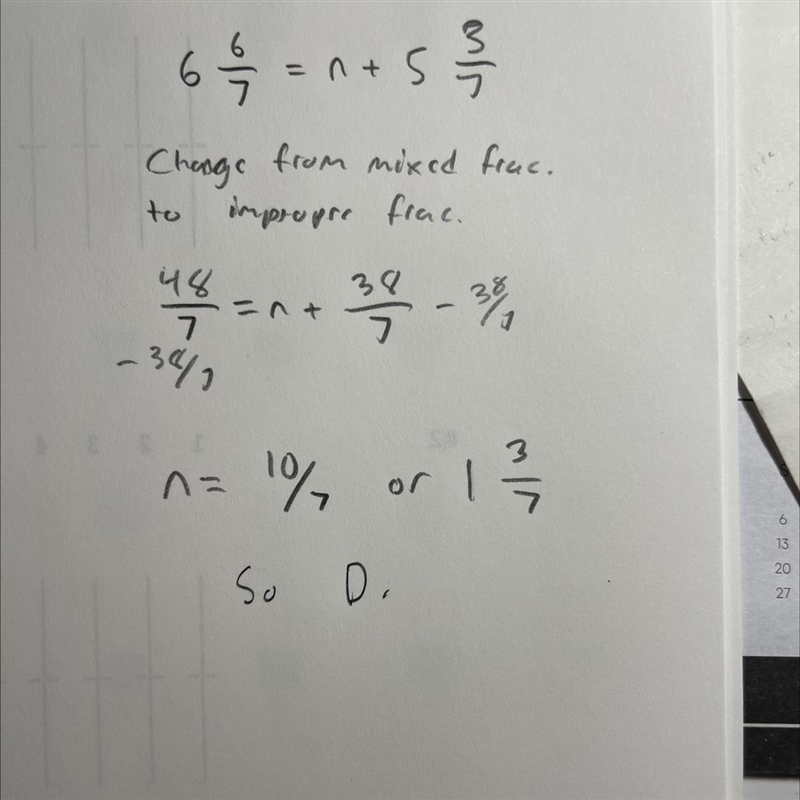 6 6/7 = n + 5 3/7
Change from mixed frac.
to impropre frac.
48/7 = n + 38/7 - 38/7
- 38/7
n = 10/7 or 1 3/7
So D.
6
13
20
27